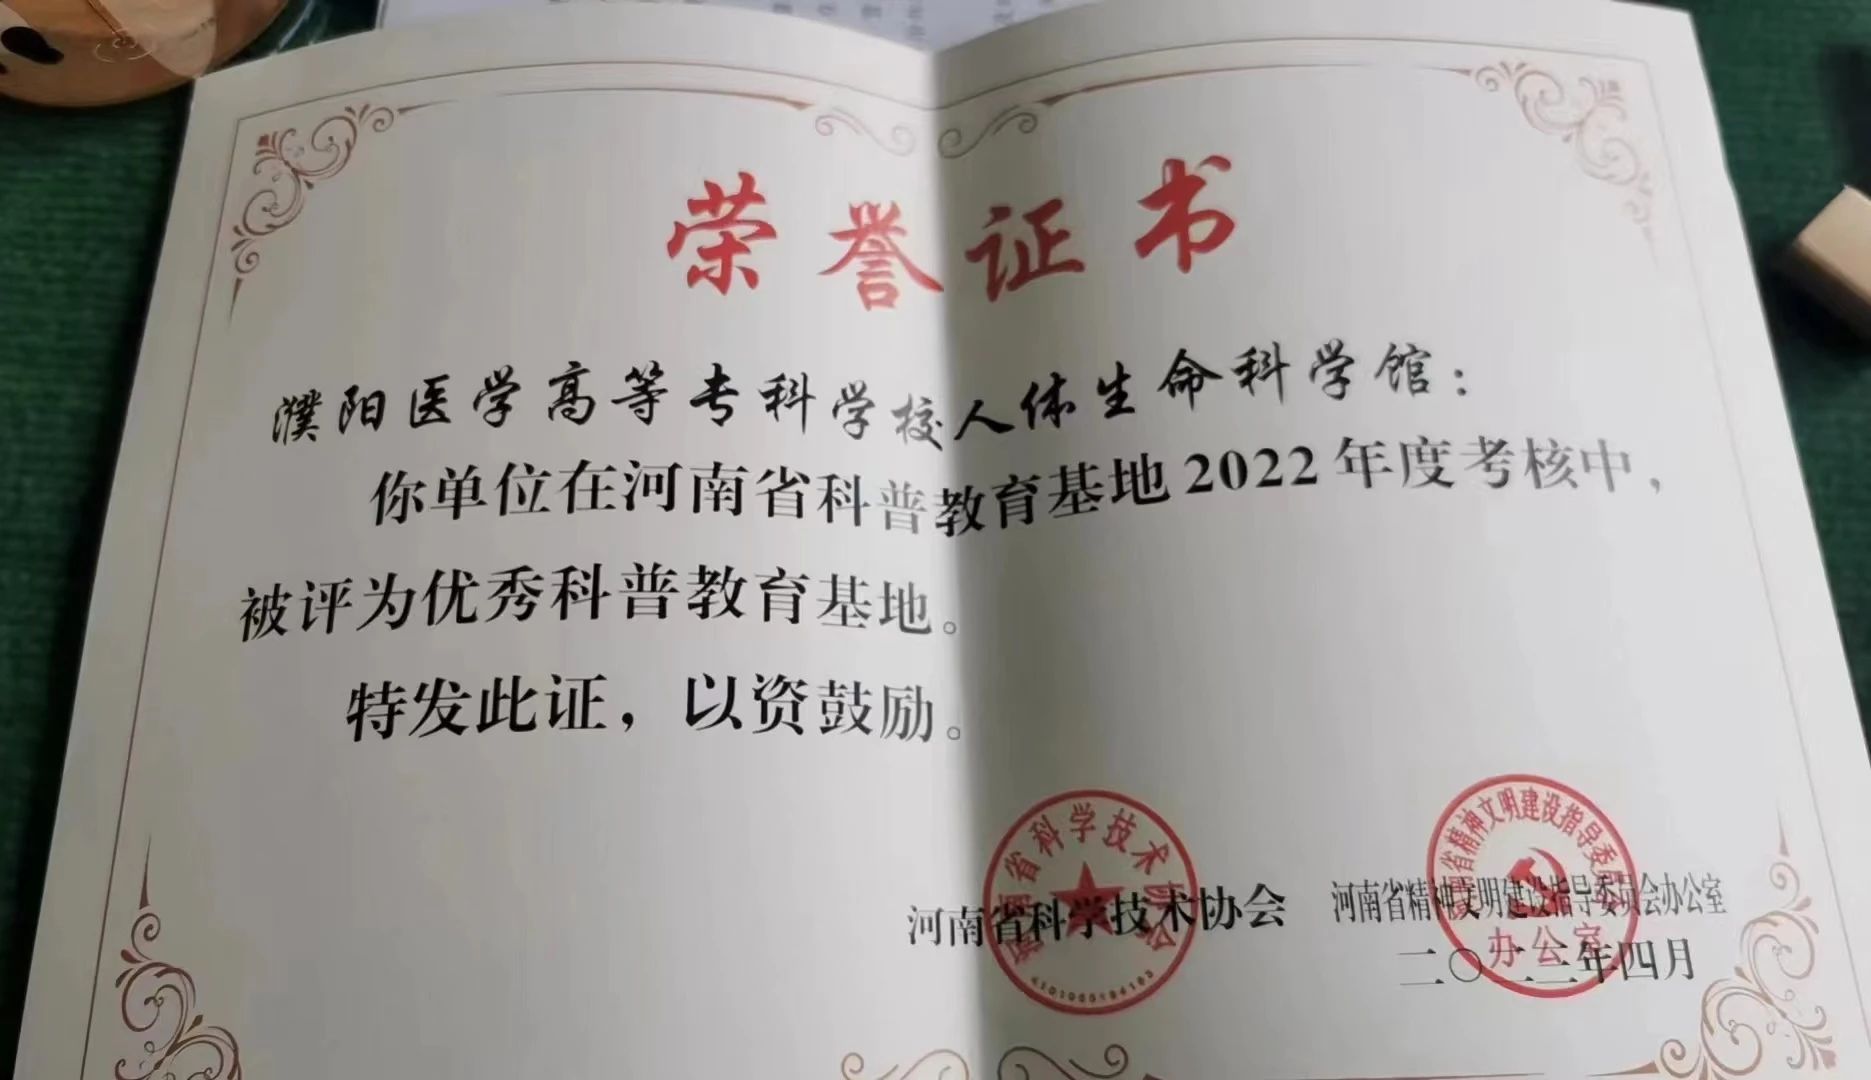 荣誉证书
濮阳医学高等专科学校人体生命科学馆：
你单位在河南省科普教育基地2022年度考核中，
被评为优秀科普教育基地。
特发此证，以资鼓励。
河南省科学技术协会
河南省精神文明建设指导委员会办公室
二〇二三年四月
河南省科学技术协会
省精神文明建设指导委员
办公室